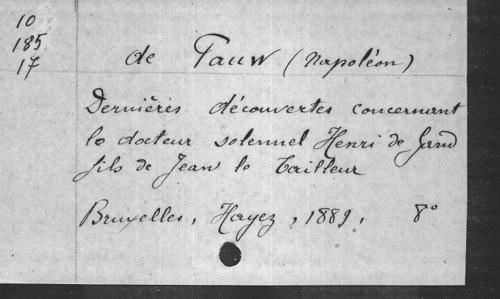 10
185
17
de Pauw (Napoléon)
Dernières découvertes concernant
le docteur solennel Henri de Gand
fils de Jean le Tailleur
Bruxelles, Hayez, 1889, 8°